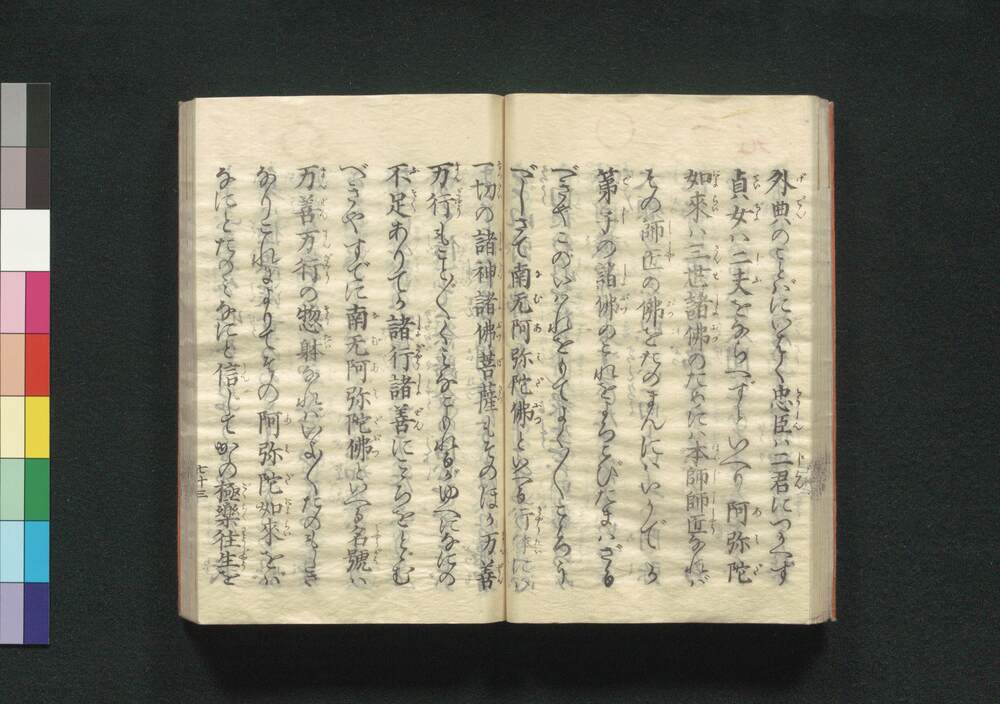 外典のことばにいはく忠臣は二君につかへず
貞女は二夫をならべずといへり阿弥陀
如來は三世諸佛のためには本師師匠なれば
その師匠の佛をたのまんにはいかでか
弟子の諸佛のこれをよろこびたまはざる
べきやこのいはれをもてよく〱こころう
べしさて南无阿弥陀佛といへる行体には
一切の諸神諸佛菩薩もそのほか万善
万行もこと〲くみなこもれるがゆへになにの
不足ありてか諸行諸善にこころをとどむ
べきやすでに南无阿弥陀佛といへる名號は
万善万行の惣躰なればいよ〱たのもしき
なりこれによりてその阿弥陀如來をば
なにとたのみなにと信じてかの極樂往生を
七十三